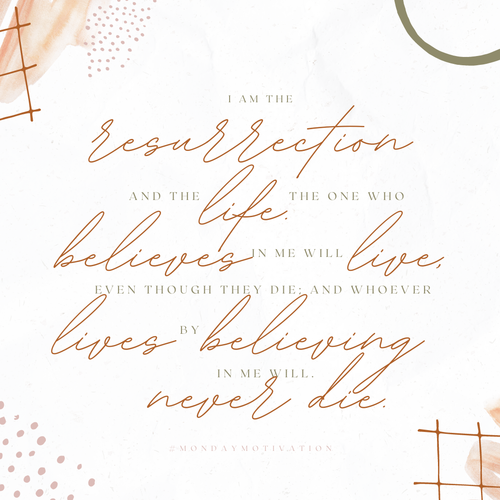 I AM THE
resurrection
AND THE life. THE ONE WHO
believes IN ME WILL live,
EVEN THOUGH THEY DIE; AND WHOEVER
lives BY believing
IN ME WILL.
never die.
#MONDAYMOTIVATION